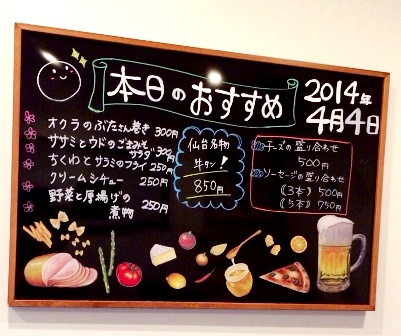 本日のおすすめ
2014年
4月4日
オクラのぶたさん巻き 300円
ササミとウドのごまみそ
サラダ 300円
ちくわとサラミのフライ 250円
クリームシチュー 250円
野菜と厚揚げの
煮物 250円
仙台名物
牛タン!
850円
チーズの盛り合わせ
500円
ソーセージの盛り合わせ
(3本) 500円
(5本) 750円